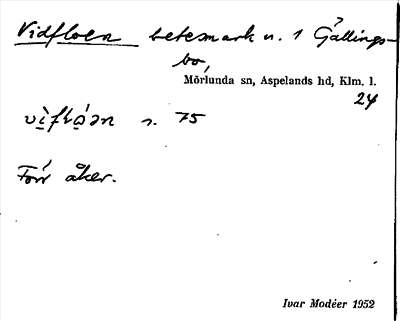 Vidfloen betesmark u. 1 Gällings-
bo,
Mörlunda sn, Aspelands hd, Klm. l.
24
s. 75
Förr åker.
Ivar Modéer 1952